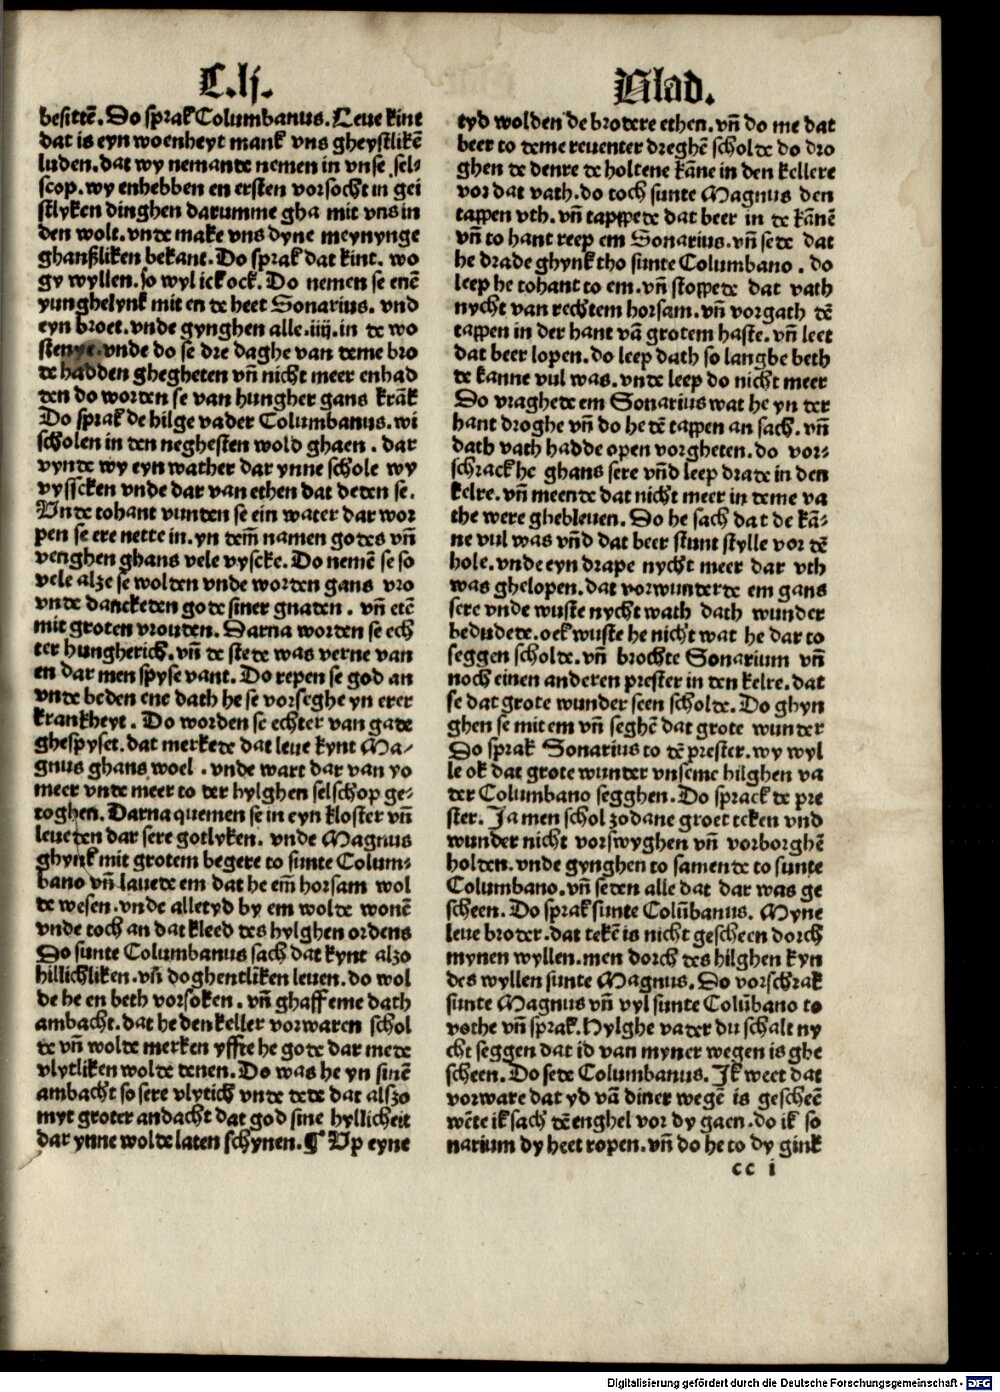 C.lj.
Blad.
besittē. Do sprak Columbanus. Leue kint
dat is eyn woenheyt mank vns gheystlikē
luden. dat wy nemande nemen in vnse sel⸗
scop. wy enhebben en ersten vorsocht in gei
stlyken dinghen darumme gha mit vns in
den wolt. vnde make vns dyne meynynge
ghanßliken bekant. Do sprak dat kint. wo
gy wyllen. so wyl ick ock. Do nemen se enē
yunghelynk mit en de heet Sonarius. vnd
eyn broet. vnde gynghen alle .iiij. in de wo
stenye. vnde do se dre daghe van deme bro
de hadden ghegheten vn̄ nicht meer enhad
den do worden se van hungher gans krāk
Do sprak de hilge vader Columbanus. wi
scholen in den neghesten wold ghaen. dar
vynde wy eyn wather dar ynne schole wy
vyssken vnde dar van ethen dat deden se.
Vnde tohant vunden se ein water dar wor
pen se ere nette in. yn dem̄ namen godes vn̄
venghen ghans vele vyscke. Do nemē se so
vele alze se wolden vnde worden gans vro
vnde danckeden gode siner gnaden. vn̄ etē
mit groten vrouden. Darna worden se ech
ter hungherich. vn̄ de stede was verne van
en dar men spyse vant. Do repen se god an
vnde beden ene dath he se vorseghe yn erer
krankheyt. Do worden se echter van gade
ghespyset. dat merkede dat leue kynt Ma⸗
gnus ghans woel. vnde wart dar van yo
meer vnde meer to der hylghen selschop ge⸗
toghen. Darna quemen se in eyn kloster vn̄
leueden dar sere gotlyken. vnde Magnus
ghynk mit grotem begere to sunte Colum⸗
bano vn̄ lauede em dat he em̄ horsam wol
de wesen. vnde alletyd by em wolde wonē
vnde toch an dat kleed des hylghen ordens
Do sunte Columbanus sach dat kynt alzo
hillichliken. vn̄ doghentliken leuen. do wol
de he en beth vorsoken. vn̄ ghaff eme dath
ambacht. dat he den keller vorwaren schol
de vn̄ wolde merken yffte he gode dar mede
vlytliken wolde denen. Do was he yn sinē
ambacht so sere vlytich vnde dede dat alszo
myt groter andacht dat god sine hyllicheit
dar ynne wolde laten schynen. ¶ Up eyne
tyd wolden de brodere ethen. vn̄ do me dat
beer to deme reuenter dreghē scholde do dro
ghen de denre de holtene kāne in den kellere
vor dat vath. do toch sunte Magnus den
tappen vth. vn̄ tappede dat beer in de kānē
vn̄ to hant reep em Sonarius. vn̄ sede dat
he drade ghynk tho sunte Columbano. do
leep he tohant to em. vn̄ stoppede dat vath
nycht van rechtem horsam. vn̄ vorgath dē
tappen in der hant vā grotem haste. vn̄ leet
dat beer lopen. do leep dath so langbe beth
de kanne vul was. vnde leep do nicht meer
Do vraghede em Sonarius wat he yn der
hant droghe vn̄ do he dē tappen an sach. vn̄
dath vath hadde open vorgheten. do vor⸗
schrack he ghans sere vn̄d leep drade in den
kelre. vn̄ meende dat nicht meer in deme va
the were ghebleuen. Do he sach dat de kā⸗
ne vul was vn̄d dat beer stunt stylle vor dē
hole. vnde eyn drape nycht meer dar vth
was ghelopen. dat vorwunderde em gans
sere vnde wuste nycht wath dath wunder
bedudede. oek wuste he nicht wat he dar to
seggen scholde. vn̄ brochte Sonarium vn̄
noch einen anderen prester in den kelre. dat
se dat grote wunder seen scholde. Do ghyn
ghen se mit em vn̄ seghē dat grote wunder
Do sprak Sonarius to dē prester. wy wyl
le ok dat grote wunder vnseme hilghen va
der Columbano segghen. Do sprack de pre
ster. Ja men schol zodane groet teken vnd
wunder nicht vorswyghen vn̄ vorborghē
holden. vnde gynghen to samende to sunte
Columbano. vn̄ seden alle dat dar was ge
scheen. Do sprak sunte Colūbanus. Myne
leue broder. dat tekē is nicht gescheen dorch
mynen wyllen. men dorch des hilghen kyn
des wyllen sunte Magnus. Do vorschrak
sunte Magnus vn̄ vyl sunte Colūbano to
vothe vn̄ sprak. Hylghe vader du schalt ny
cht seggen dat id van myner wegen is ghe
scheen. Do sede Columbanus. Ik weet dat
vorware dat yd vā diner wegē is gescheē
wēte ik sach dē enghel vor dy gaen. do ik so
narium dy heet ropen. vn̄ do he to dy gink
cc i
Digitalisierung gefördert durch die Deutsche Forschungsgemeinschaft - DFG